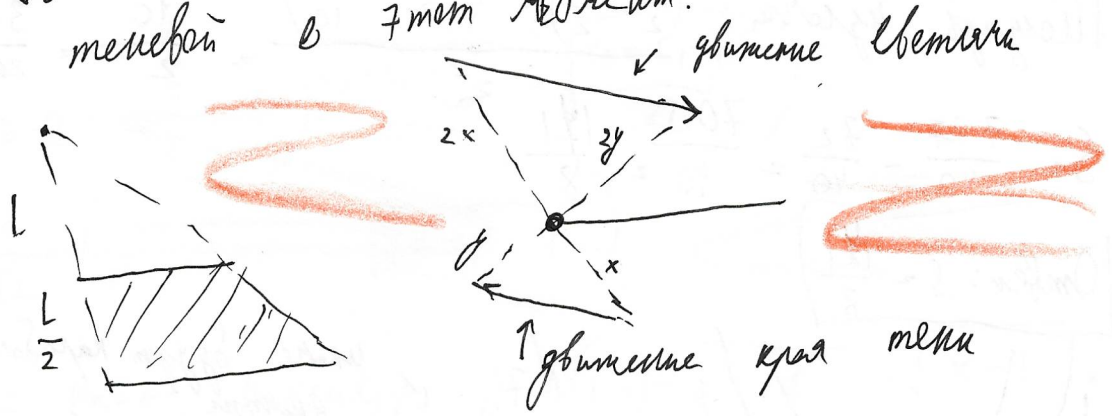 теневой в этот момент.
движение светлячи
2x
2y
L
y
x
L
2
движение края тени